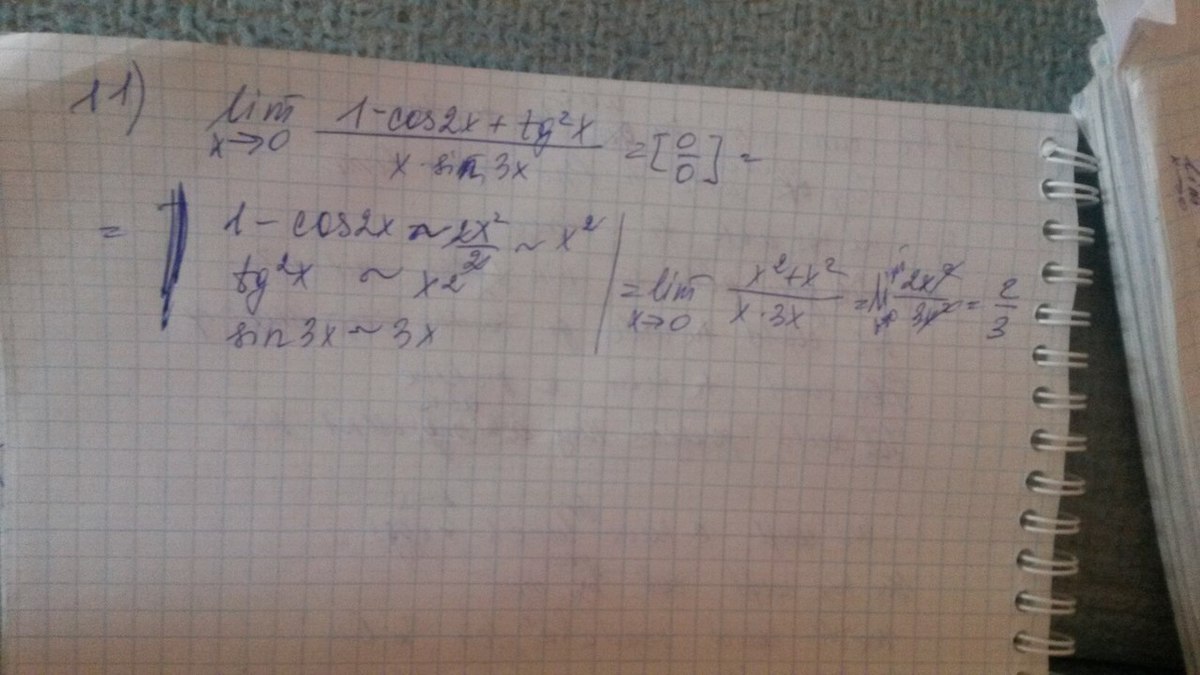 11) lim x→0 (1-cos2x + tg²x)/(x·sin3x) = [0/0] =
= | 1-cos2x ~ 2x²/2 ~ x² |
tg²x ~ x²
sin3x ~ 3x
= lim x→0 (x²+x²)/(x·3x) = lim x→0 2x²/3x² = 2/3